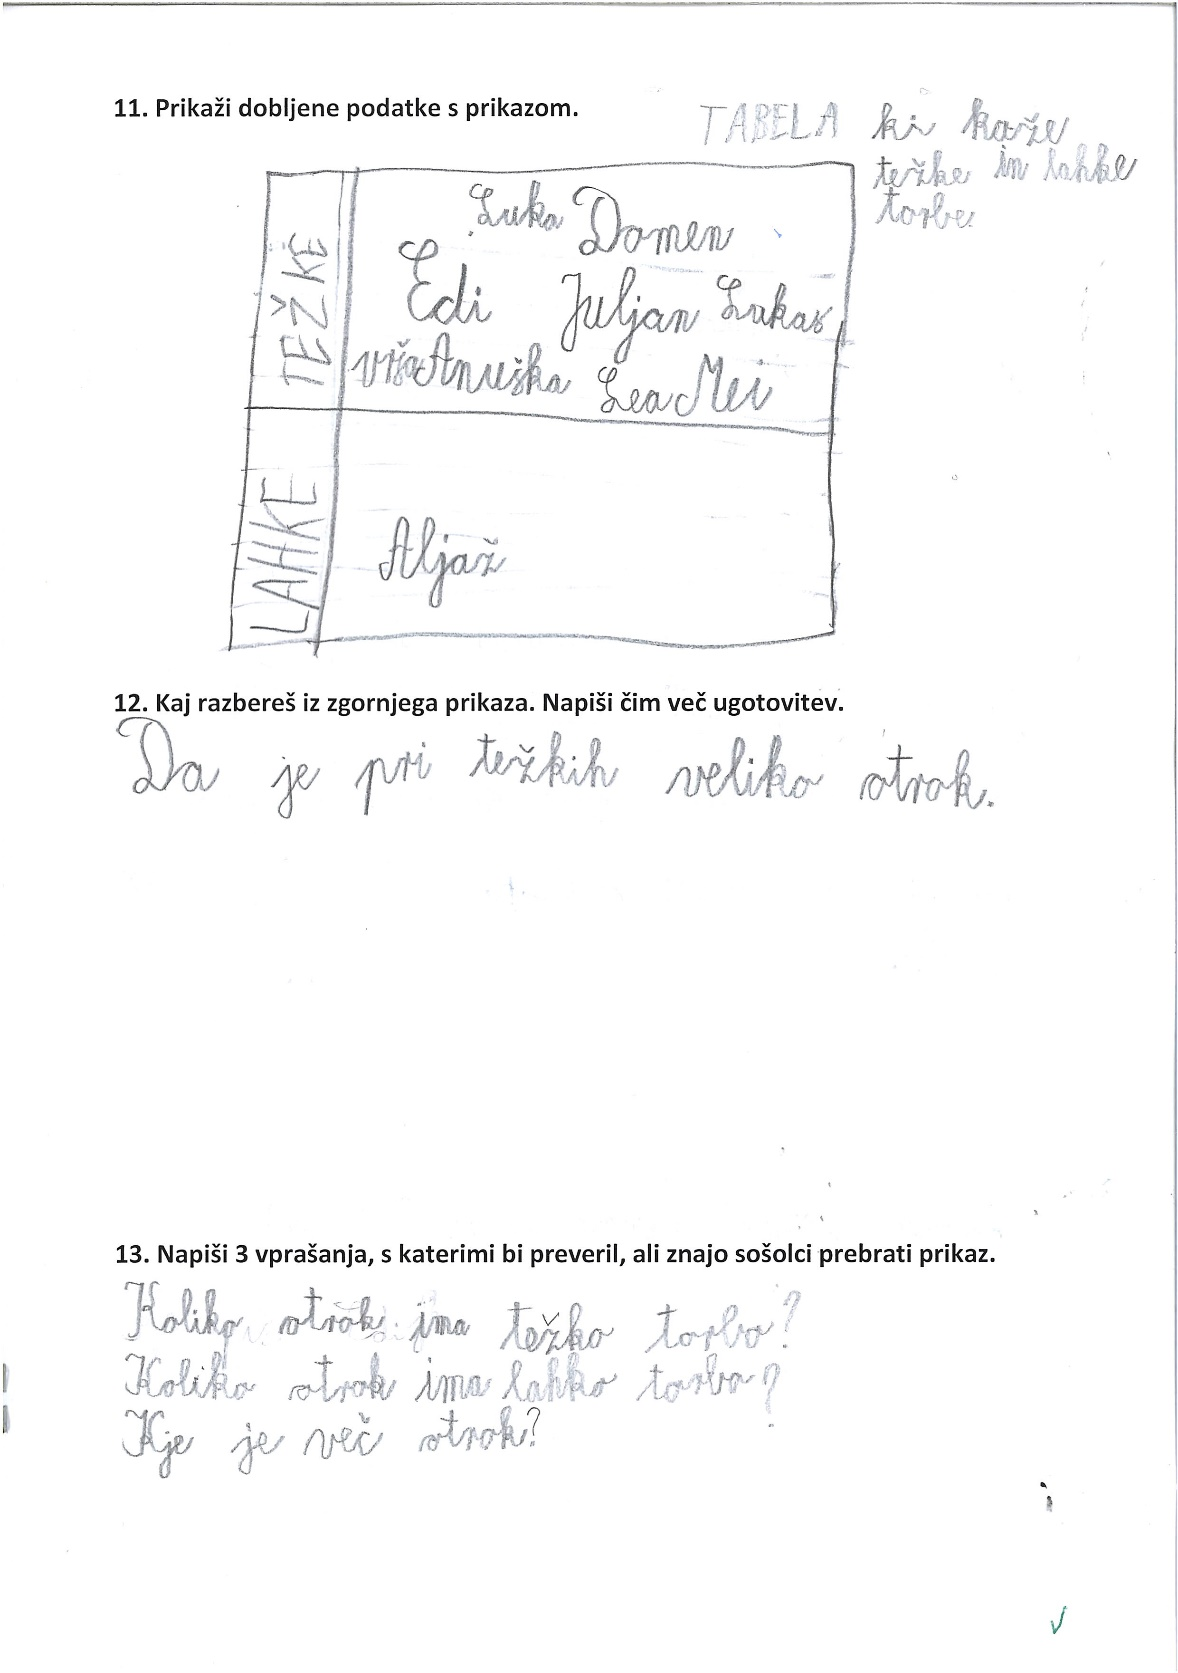 11. Prikaži dobljene podatke s prikazom.
TABELA ki kaže
težke in lahke
torbe
TEŽKE
Luka Domen
Edi Juljan Lukas
vrša Anuška Lea Mei
LAHKE
Aljaž
12. Kaj razbereš iz zgornjega prikaza. Napiši čim več ugotovitev.
Da je pri težkih veliko otrok.
13. Napiši 3 vprašanja, s katerimi bi preveril, ali znajo sošolci prebrati prikaz.
Koliko otrok ima težko torbo?
Koliko otrok ima lahko torbo?
Kje je več otrok?